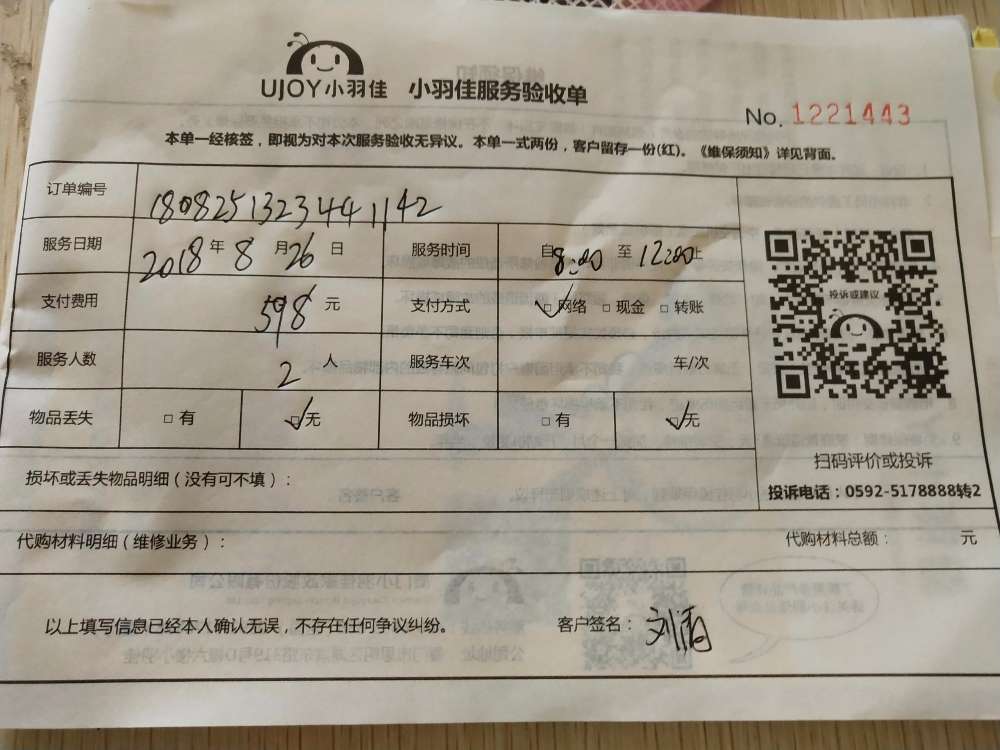 UJOY小羽佳 小羽佳服务验收单
No. 1221443
本单一经核签，即视为对本次服务验收无异议。本单一式两份，客户留存一份(红)。《维保须知》详见背面。
订单编号 1808251323441142
服务日期 2018年8月26日 服务时间 自8:00至12:00止
支付费用 598元 支付方式 ☑网络 □现金 □转账
投诉或建议
服务人数 2人 服务车次 车/次
物品丢失 □有 ☑无 物品损坏 □有 ☑无
扫码评价或投诉
损坏或丢失物品明细（没有可不填）：
投诉电话：0592-5178888转2
代购材料明细（维修业务）： 代购材料总额： 元
以上填写信息已经本人确认无误，不存在任何争议纠纷。 客户签名：刘